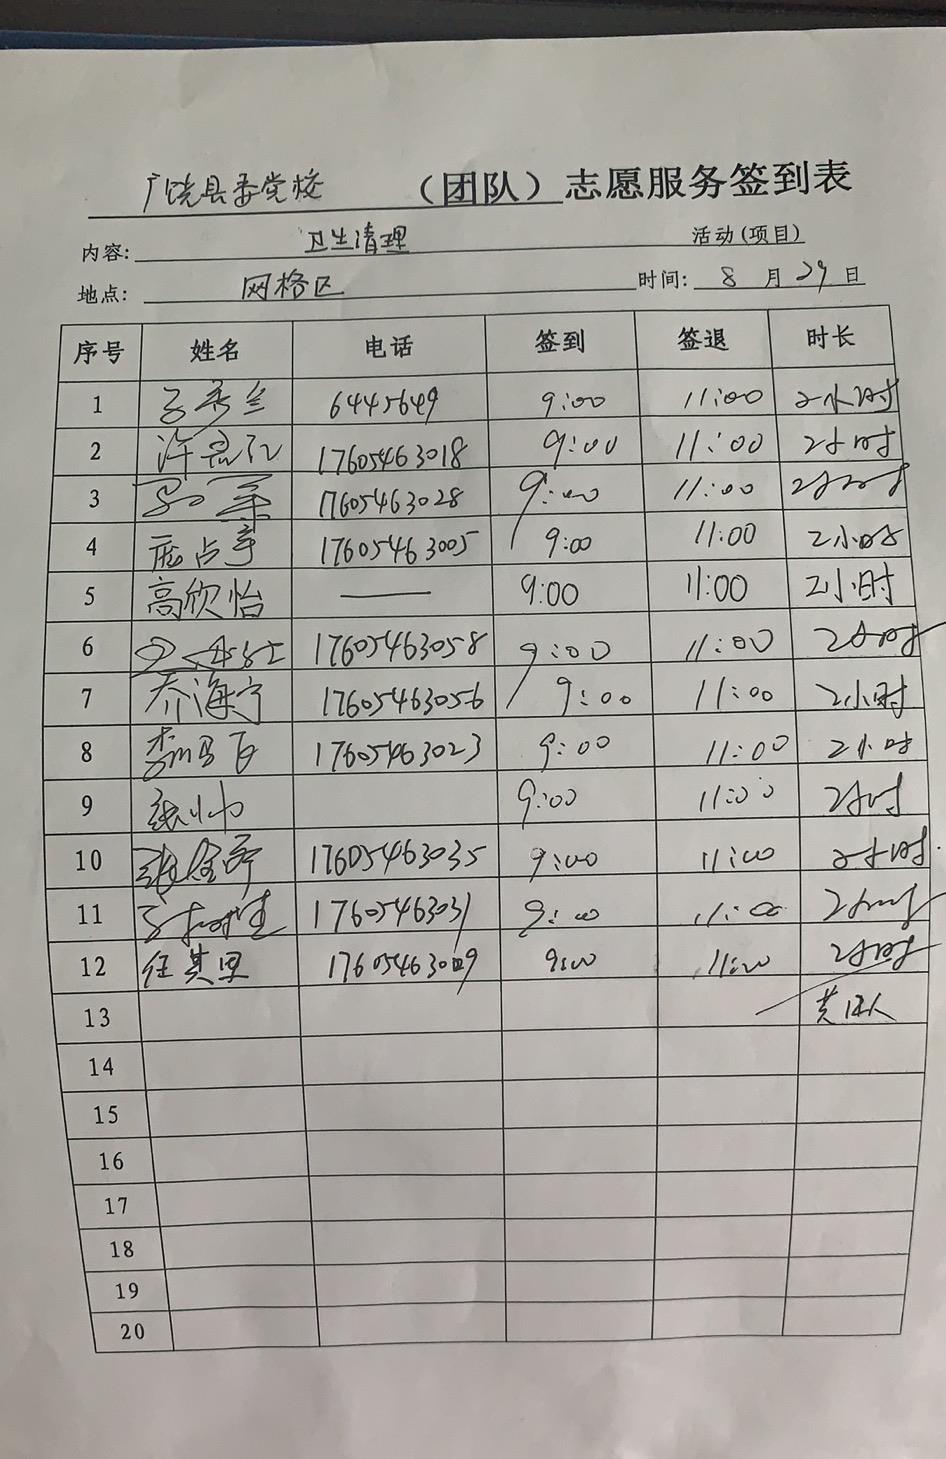 广饶县委党校 （团队）志愿服务签到表
内容: 卫生清理 活动(项目)
地点: 网格区 时间: 8 月 29 日
序号 姓名 电话 签到 签退 时长
1 6445649 9:00 11:00 2小时
2 17605463018 9:00 11:00 2小时
3 17605463028 9:00 11:00 2小时
4 17605463005 9:00 11:00 2小时
5 高欣怡 —— 9:00 11:00 2小时
6 17605463058 9:00 11:00 2小时
7 乔海宁 17605463056 9:00 11:00 2小时
8 17605463023 9:00 11:00 2小时
9 张小帅 9:00 11:00 2小时
10 17605463035 9:00 11:00 2小时
11 17605463031 9:00 11:00 2小时
12 任其里 9:00 11:00 2小时
13
14
15
16
17
18
19
20